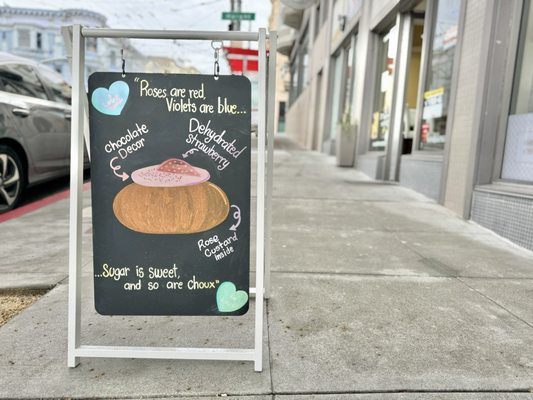 "Roses are red,
Violets are blue...
Chocolate
Decor
Dehydrated
Strawberry
Rose
Custard
Inside
...Sugar is sweet,
and so are choux"